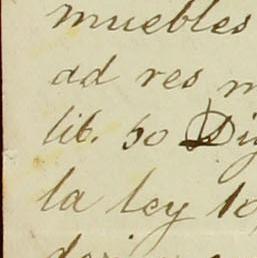 muebles
ad res m
lib. 50 Dig
la ley 10